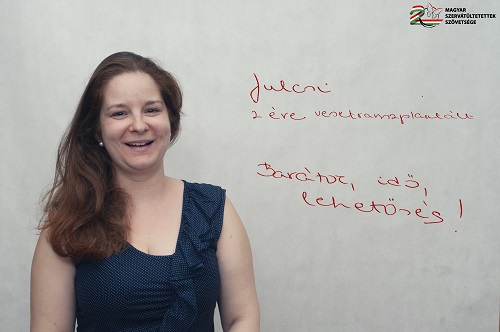 MAGYAR
SZERVÁTÜLTETETTEK
SZÖVETSÉGE
Julcsi
2 éve vesetranszplantált
Barátok, idő,
lehetőség!